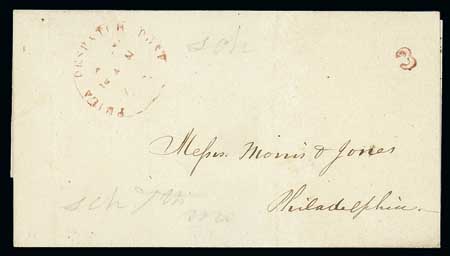 PHILA DESPATCH POST
3
sch
Messrs. Morris & Jones
Philadelphia
sch